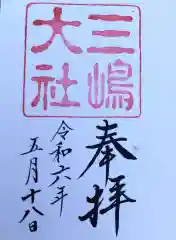 三嶋
大社
奉拝
令和六年
五月十八日